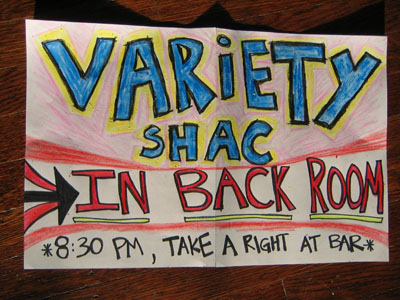 VARiETY
SHAC
IN BACK ROOM
*8:30 PM, TAKE A RIGHT AT BAR*